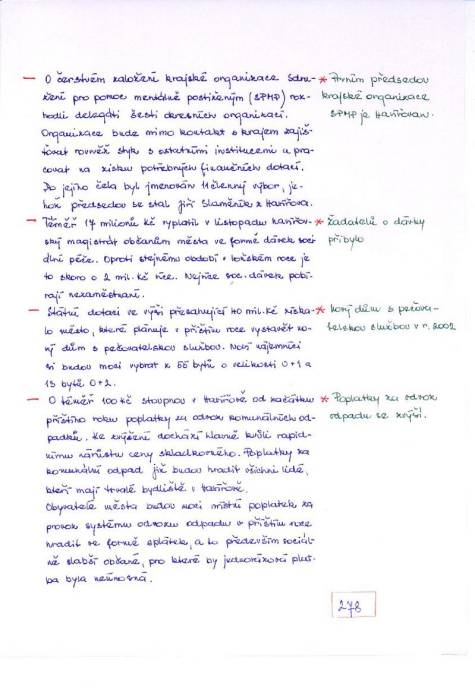 — O čerstvém založení krajské organizace Sdru-
žení pro pomoc mentálně postiženým (SPMP) roz-
hodli delegáti šesti okresních organizací.
Organizace bude mimo kontakt s krajem zajiš-
ťovat rovněž styk s ostatními institucemi a pra-
covat na zisku potřebných finančních dotací.
Do jejího čela byl jmenován 11členný výbor, je-
hož předsedou se stal Jiří Slaměník z Havířova.
* Prvním předsedou
krajské organizace
SPMP je Havířovan.
— Téměř 17 milionů Kč vyplatil v listopadu havířov-
ský magistrát občanům města ve formě dávek soci-
ální péče. Oproti stejnému období v loňském roce je
to skoro o 2 mil. Kč více. Nejvíce soc. dávek pobí-
rají nezaměstnaní.
* Žadatelů o dávky
přibylo
— Státní dotaci ve výši přesahující 40 mil. Kč získa-
lo město, které plánuje v příštím roce vystavět no-
vý dům s pečovatelskou službou. Noví nájemníci
si budou moci vybrat z 55 bytů o velikosti 0+1 a
15 bytů 0+2.
* Nový dům s pečova-
telskou službou v r. 2002
— O téměř 100 Kč stoupnou v Havířově od začátku
příštího roku poplatky za odvoz komunálních od-
padků. Ke zvýšení dochází hlavně kvůli rapid-
nímu nárůstu ceny skládkovného. Poplatky za
komunální odpad již budou hradit všichni lidé,
kteří mají trvalé bydliště v Havířově.
Obyvatelé města budou moci místní poplatek za
provoz systému odvozu odpadu v příštím roce
hradit ve formě splátek, a to především sociál-
ně slabší občané, pro které by jednorázová plat-
ba byla neúnosná.
* Poplatky za odvoz
odpadu se zvýší.
278